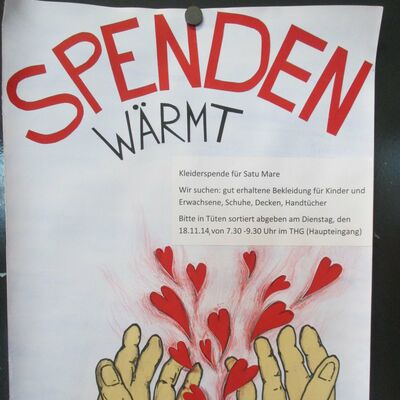 SPENDEN
WÄRMT
Kleiderspende für Satu Mare
Wir suchen: gut erhaltene Bekleidung für Kinder und
Erwachsene, Schuhe, Decken, Handtücher
Bitte in Tüten sortiert abgeben am Dienstag, den
18.11.14 von 7.30 -9.30 Uhr im THG (Haupteingang)